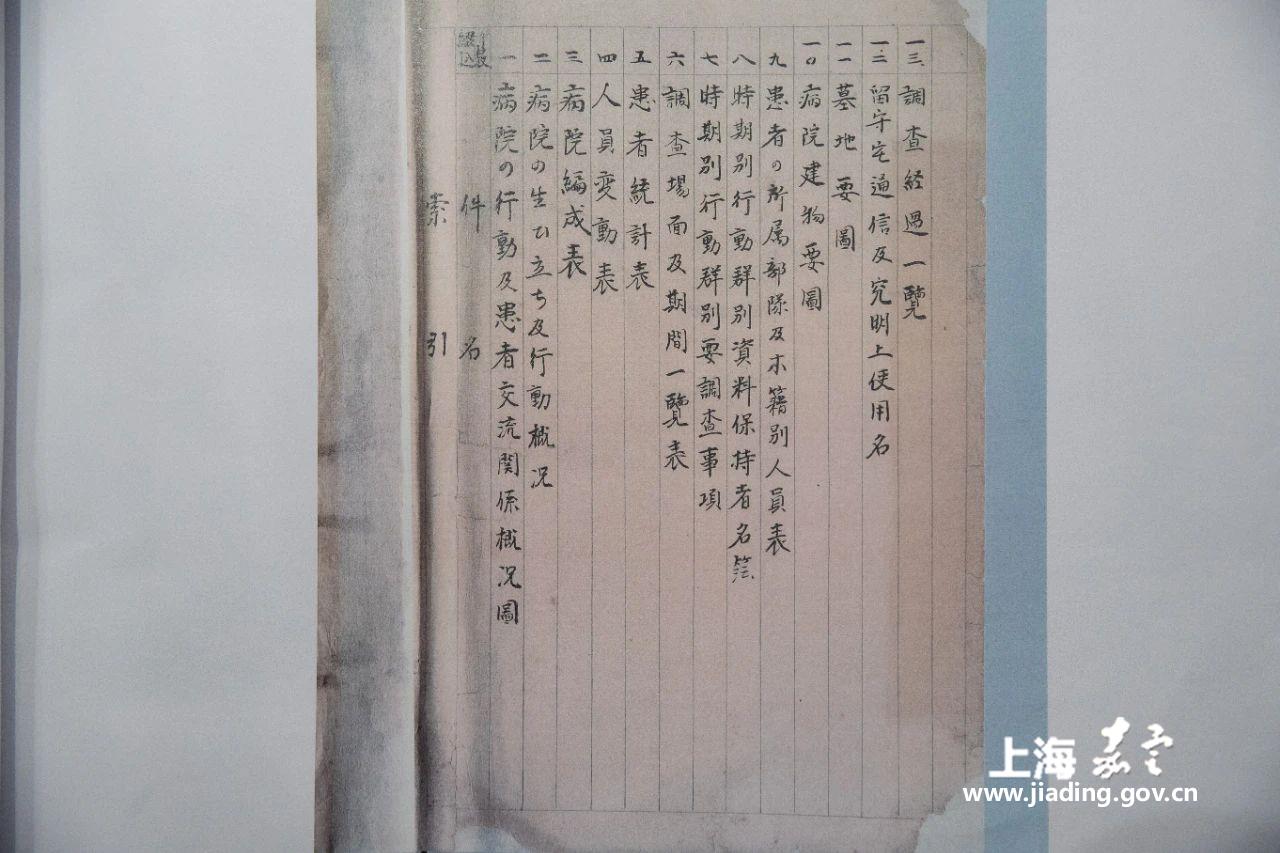 索引
綴込
件名
一 病院の行動及患者交流関係概況圖
二 病院の生ひ立ち及行動概况
三 病院編成表
四 人員変動表
五 患者統計表
六 調査場面及期間一覽表
七 時期別行動群別要調査事項
八 時期別行動群別資料保持者名簿
九 患者の所属部隊及本籍別人員表
一〇 病院建物要圖
一一 墓地要圖
一二 留守宅通信及究明上使用名
一三 調査経過一覽
上海嘉定
www.jiading.gov.cn